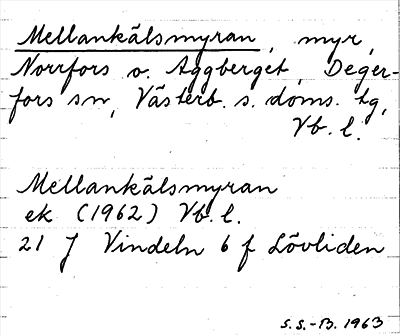 Mellankälsmyran, myr,
Norrfors o. Aggberget, Deger-
fors sn, Västerb. s. doms. tg,
Vb. l.
Mellankälsmyran
ek (1962) Vb. l.
21 J Vindeln 6 f Lövliden
S.S.-B. 1963